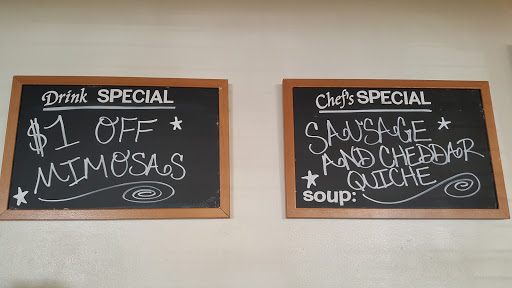 Drink SPECIAL
$1 OFF
MIMOSAS
Chef's SPECIAL
SAUSAGE
AND CHEDDAR
QUICHE
soup: